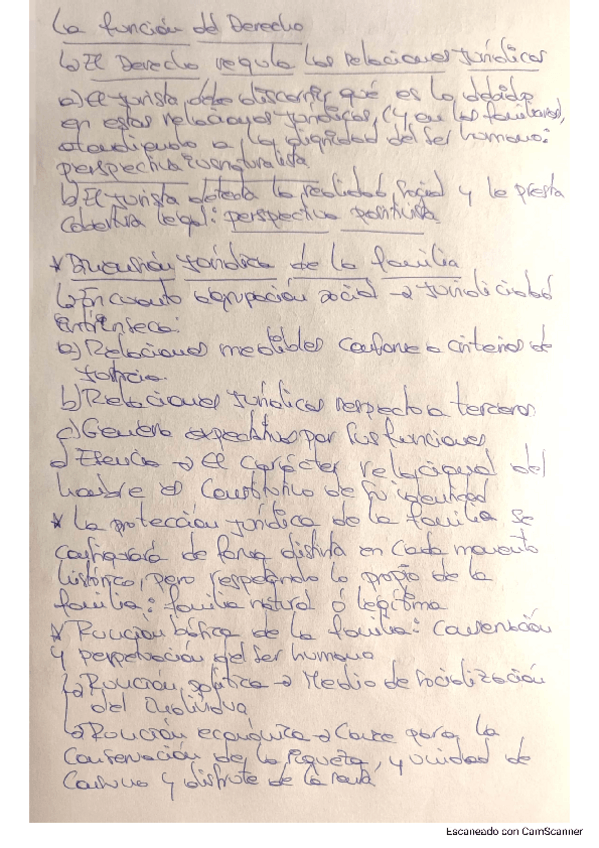 La función del Derecho
↳ El Derecho regula las relaciones jurídicas
a) El jurista debe discernir qué es lo debido
en estas relaciones jurídicas, (y en las familiares),
atendiendo a la dignidad del ser humano:
perspectiva iusnaturalista
b) El jurista detecta la realidad social y le presta
cobertura legal: perspectiva positivista
* Dimensión jurídica de la familia
↳ En cuanto agrupación social → juridicidad
intrínseca:
a) Relaciones medibles conforme a criterios de
justicia.
b) Relaciones jurídicas respecto a terceros
c) Genera expectativas por sus funciones
d) Esencia → el carácter relacional del
hombre es constitutivo de su identidad
* La protección jurídica de la familia se
configurará de forma distinta en cada momento
histórico, pero respetando lo propio de la
familia: familia natural ó legítima
* Función básica de la familia: conservación
y perpetuación del ser humano
↳ Función política → Medio de socialización
del individuo
↳ Función económica → Cauce para la
conservación de la riqueza, y unidad de
consumo y disfrute de la renta
Escaneado con CamScanner